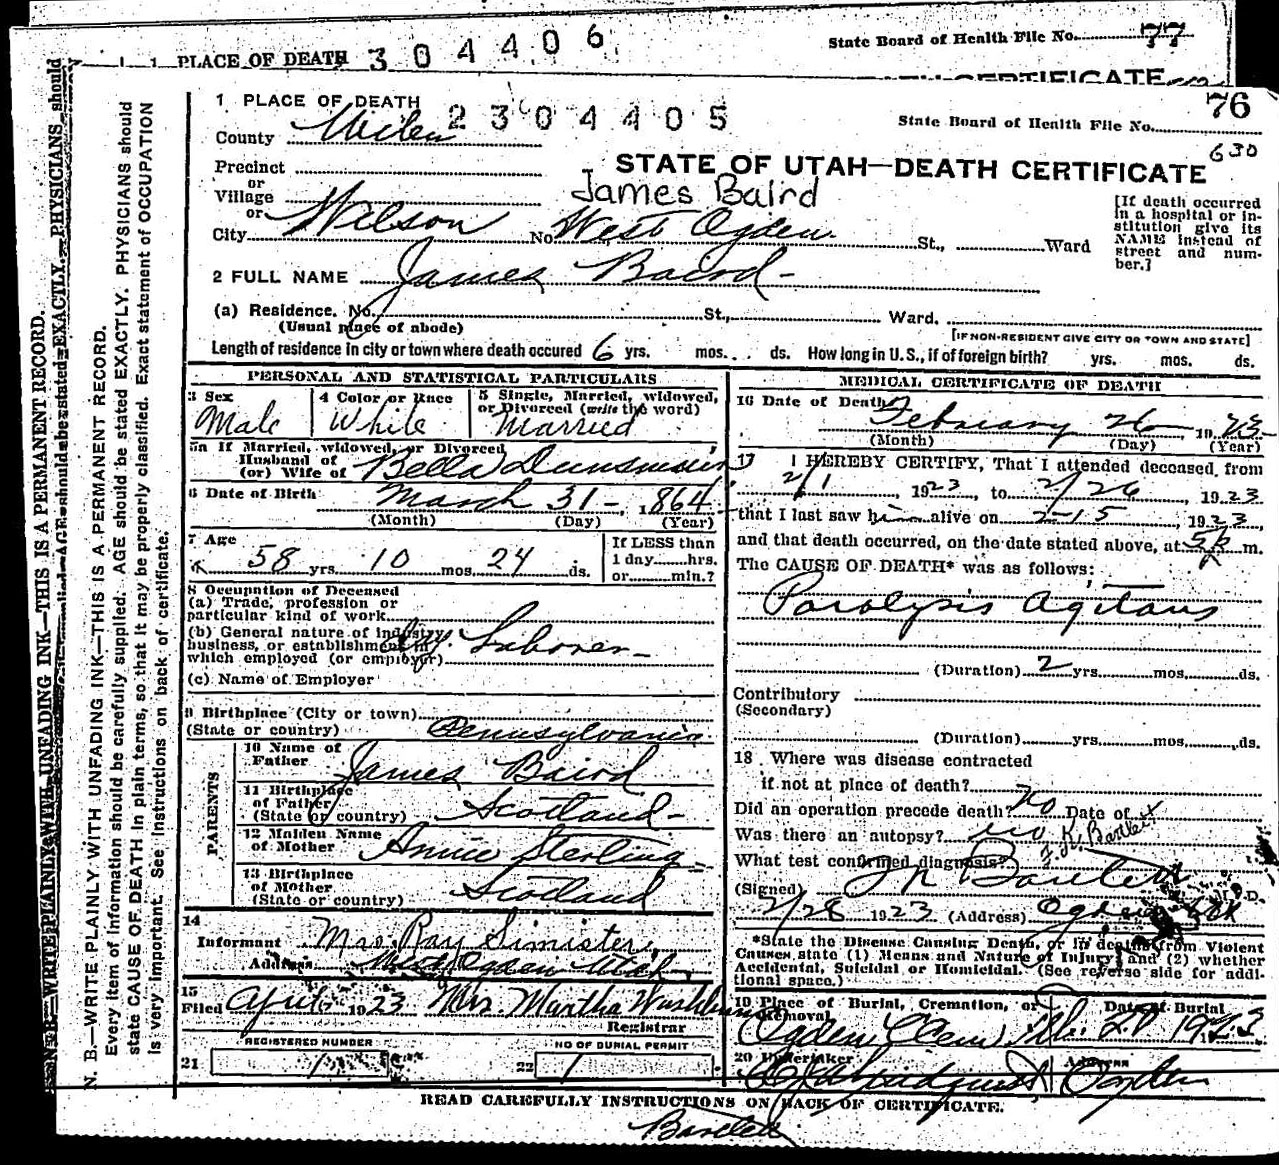 1 PLACE OF DEATH 304406
State Board of Health File No. 77
CERTIFICATE
1 PLACE OF DEATH
2304405
76
State Board of Health File No.
630
County
STATE OF UTAH—DEATH CERTIFICATE
Precinct
or
Village
or
James Baird
City Wilson No. West Ogden St., Ward
[If death occurred
in a hospital or in-
stitution give its
NAME instead of
street and num-
ber.]
2 FULL NAME James Baird
(a) Residence. No. St., Ward.
(Usual place of abode)
[IF NON-RESIDENT GIVE CITY OR TOWN AND STATE]
Length of residence in city or town where death occured 6 yrs. mos. ds. How long in U.S., if of foreign birth? yrs. mos. ds.
PERSONAL AND STATISTICAL PARTICULARS
3 Sex
Male
4 Color or Race
White
5 Single, Married, widowed,
or Divorced (write the word)
Married
5a If Married, widowed, or Divorced
Husband of
(or) Wife of Bella
6 Date of Birth March 31-, 1864
(Month) (Day) (Year)
7 Age
58 yrs. 10 mos. 24 ds.
If LESS than
1 day hrs.
or min.?
8 Occupation of Deceased
(a) Trade, profession or
particular kind of work
(b) General nature of industry,
business, or establishment in
which employed (or employer) Laborer
(c) Name of Employer
9 Birthplace (City or town)
(State or country) Pennsylvania
PARENTS
10 Name of
Father James Baird
11 Birthplace
of Father
(State or country) Scotland
12 Maiden Name
of Mother Annie Sterling
13 Birthplace
of Mother
(State or country) Scotland
14
Informant Mrs. Ray Simister
Address West Ogden Utah
15
Filed April 6 1923 Mrs. Martha
Registrar
REGISTERED NUMBER
21 1
NO OF BURIAL PERMIT
22 1
MEDICAL CERTIFICATE OF DEATH
16 Date of Death February 26 1923
(Month) (Day) (Year)
17 I HEREBY CERTIFY, That I attended deceased from
2/1, 1923 to 2/26, 1923
that I last saw him alive on 2-15, 1923,
and that death occurred, on the date stated above, at 5 m.
The CAUSE OF DEATH* was as follows:
Paralysis Agitans
(Duration) 2 yrs. mos. ds.
Contributory
(Secondary)
(Duration) yrs. mos. ds.
18 Where was disease contracted
if not at place of death?
Did an operation precede death? no Date of x
Was there an autopsy? no
What test confirmed diagnosis?
(Signed) Bartlett M. D.
2/28 1923 (Address) Ogden
*State the Disease Causing Death, or in deaths from Violent
Causes, state (1) Means and Nature of Injury and (2) whether
Accidental, Suicidal or Homicidal. (See reverse side for addi-
tional space.)
19 Place of Burial, Cremation, or Removal Date of Burial
Ogden Cem 1923
20 Undertaker Address
Ogden
READ CAREFULLY INSTRUCTIONS ON BACK OF CERTIFICATE.
Bartlett
N. B.—WRITE PLAINLY WITH UNFADING INK—THIS IS A PERMANENT RECORD.
Every item of information should be carefully supplied. AGE should be stated EXACTLY. PHYSICIANS should
state CAUSE OF DEATH in plain terms, so that it may be properly classified. Exact statement of OCCUPATION
is very important. See instructions on back of certificate.
N. B.—WRITE PLAINLY WITH UNFADING INK—THIS IS A PERMANENT RECORD.